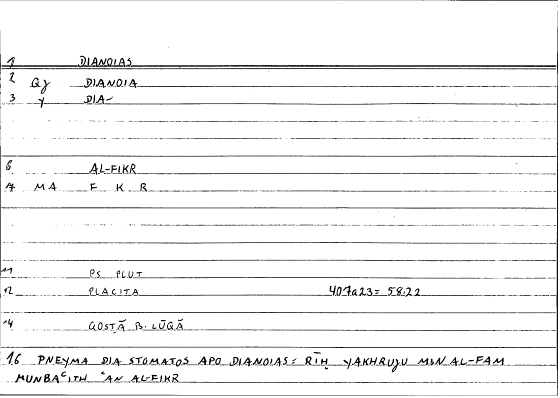 1 DIANOIAS
2 Qj DIANOIA
3 y DIA-
6 AL-FIKR
7 MA F K R
11 PS PLUT
12 PLACITA 407a23= 58.22
14 QOSṬĀ B. LŪQĀ
16 PNEYMA DIA STOMATOS APO DIANOIAS= RĪḤ YAKHRUJU MIN AL-FAM
MUNBAʿITH ʿAN AL-FIKR